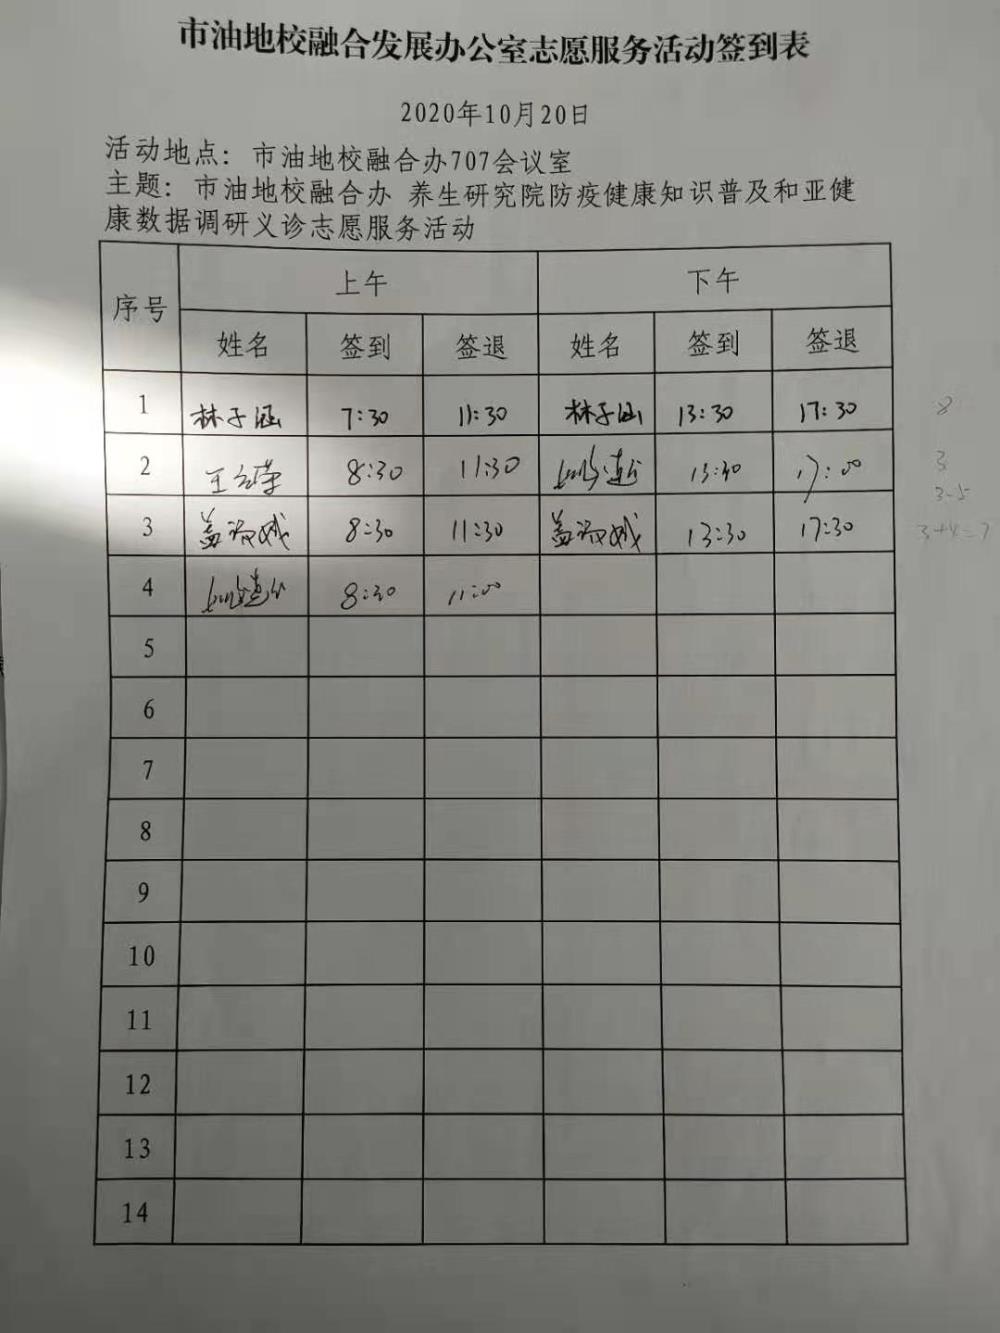 市油地校融合发展办公室志愿服务活动签到表
2020年10月20日
活动地点：市油地校融合办707会议室
主题：市油地校融合办 养生研究院防疫健康知识普及和亚健
康数据调研义诊志愿服务活动
序号 上午 下午
姓名 签到 签退 姓名 签到 签退
1 林子涵 7:30 11:30 林子涵 13:30 17:30 8
2 王 8:30 11:30 13:30 17:00 3
3-5
3 8:30 11:30 13:30 17:30 3+4=7
4 8:30 11:00
5
6
7
8
9
10
11
12
13
14